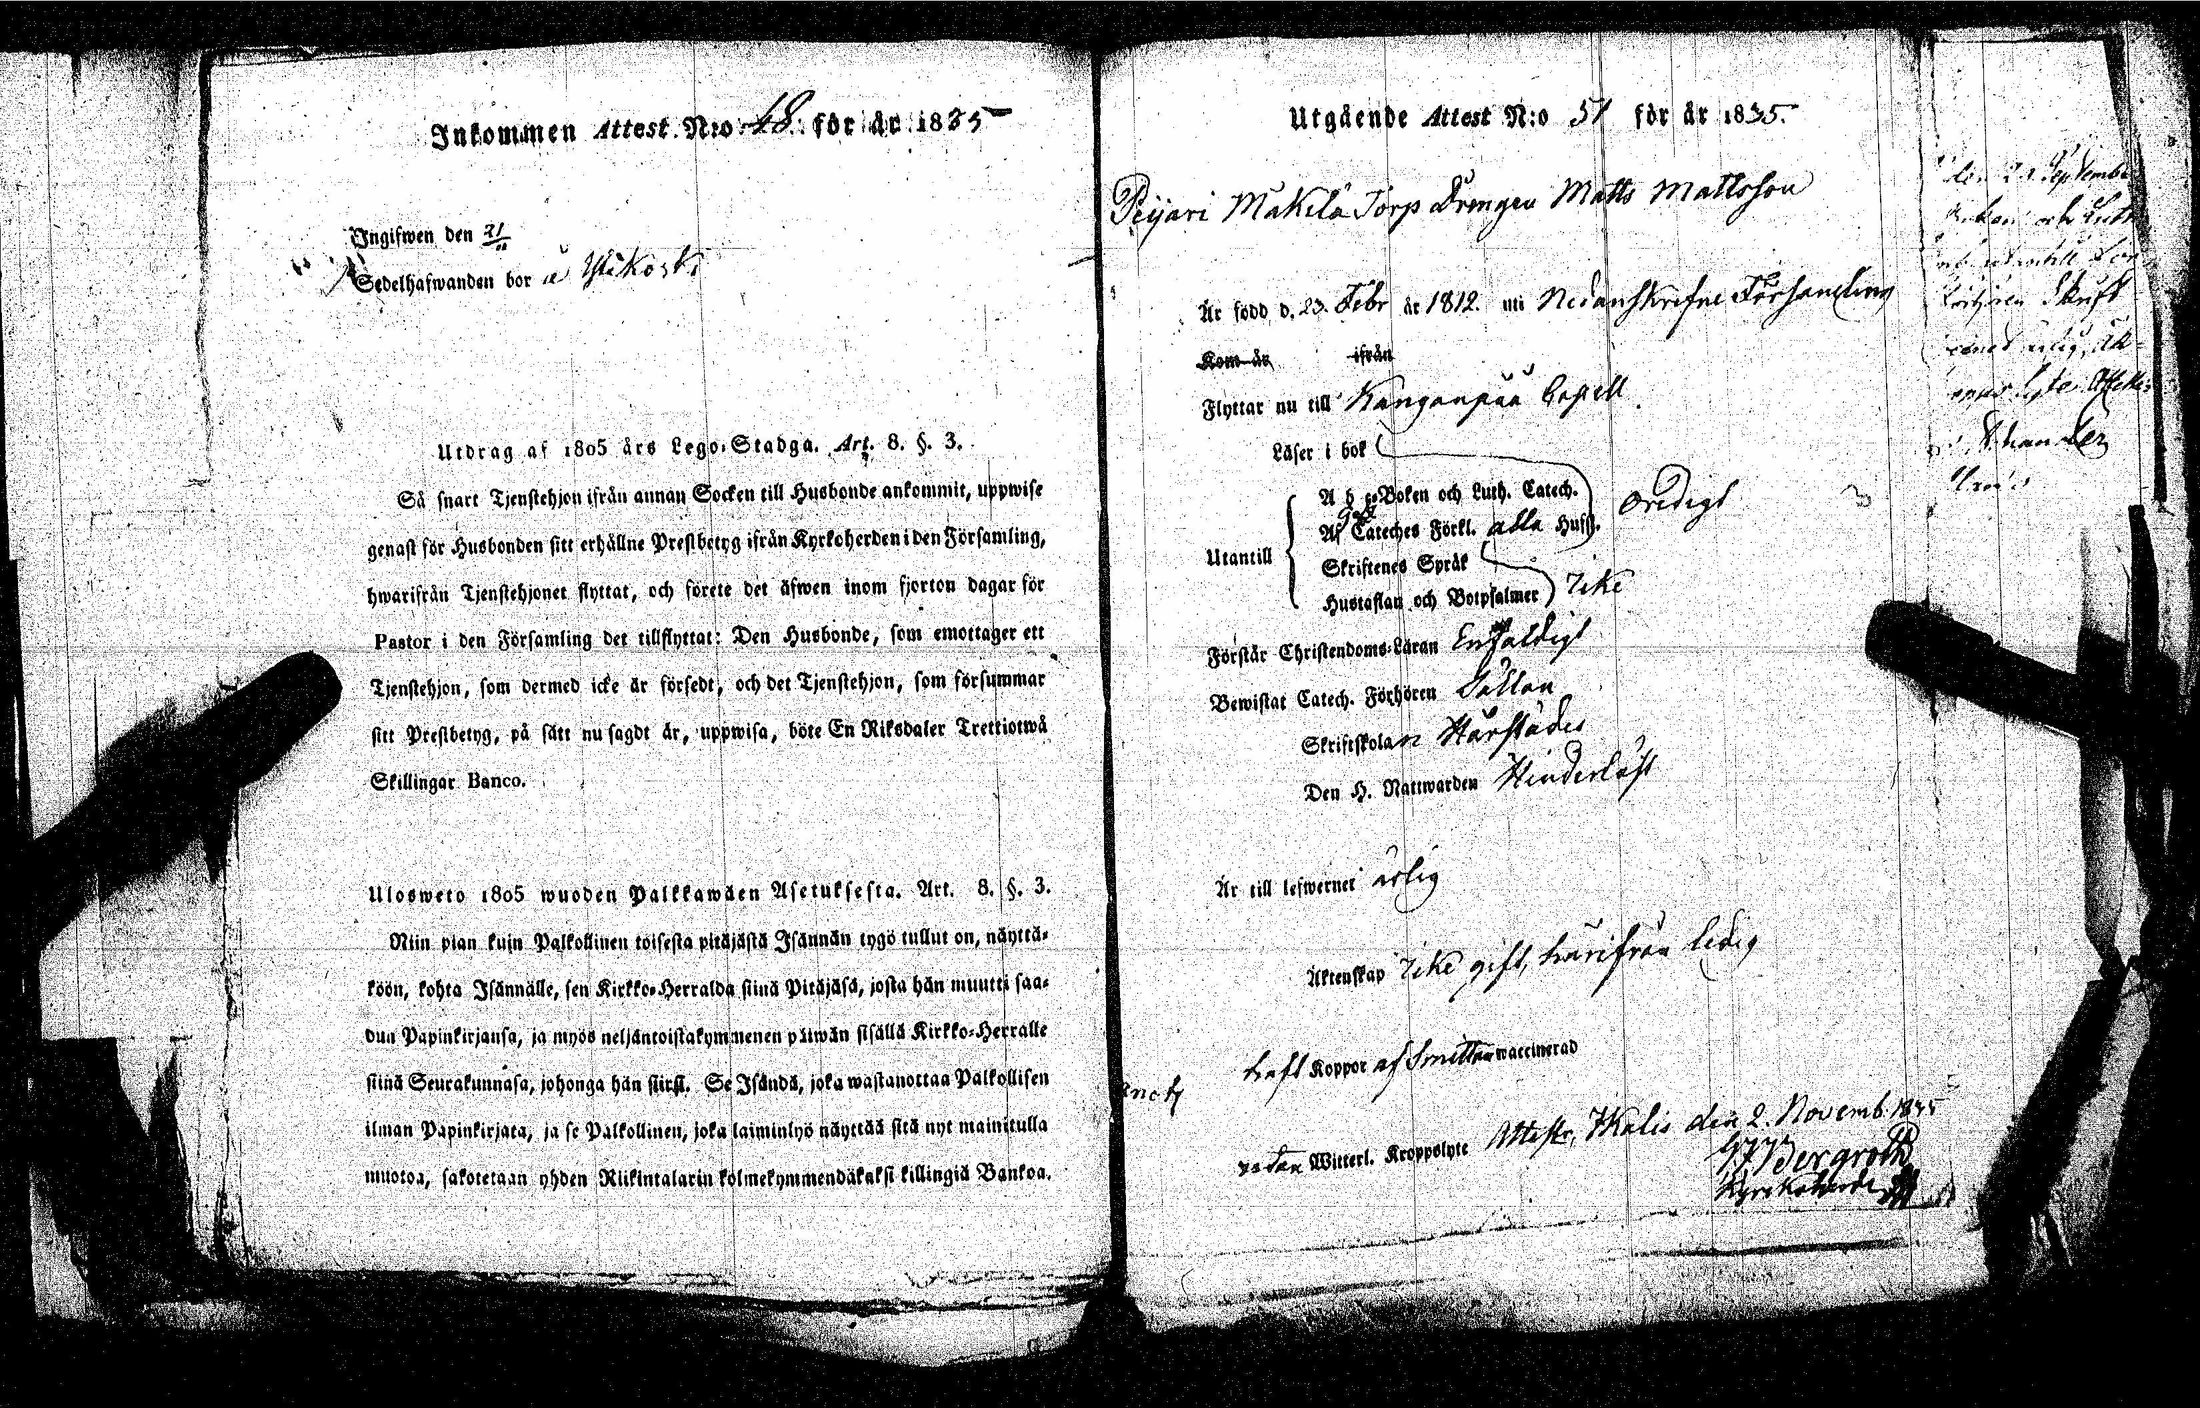 Inkommen Attest N:o 48. för år 1835
Ingifwen den 21/11
Sedelhafwanden bor å Ylikoski
Utdrag af 1805 års Lego-Stadga. Art. 8. §. 3.
Så snart Tjenstehjon ifrån annan Socken till Husbonde ankommit, uppwise
genast för Husbonden sitt erhållne Prestbetyg ifrån Kyrkoherden i den Församling,
hwarifrån Tjenstehjonet flyttat, och förete det äfwen inom fjorton dagar för
Pastor i den Församling det tillflyttat: Den Husbonde, som emottager ett
Tjenstehjon, som dermed icke är försedt, och det Tjenstehjon, som försummar
sitt Prestbetyg, på sätt nu sagdt är, uppwisa, böte En Riksdaler Trettiotwå
Skillingar Banco.
Ulosweto 1805 wuoden Palkkawäen Asetuksesta. Art. 8. §. 3.
Niin pian kuin Palkollinen toisesta pitäjästä Isännän tygö tullut on, näyttä-
köön, kohta Isännälle, sen Kirkko-Herralda siinä Pitäjäsä, josta hän muutti saa-
dun Papinkirjansa, ja myös neljäntoistakymmenen päiwän sisällä Kirkko-Herralle
siinä Seurakunnasa, johonga hän siirsi. Se Isändä, joka wastanottaa Palkollisen
ilman Papinkirjata, ja se Palkollinen, joka laiminlyö näyttää sitä nyt mainitulla
muotoa, sakotetaan yhden Riikintalarin kolmekymmendäkaksi killingiä Bankoa.
Utgående Attest N:o 51 för år 1835.
Peijari Mäkilä Torp Drengen Matts Mattsson
Är född d. 23. Febr år 1812. uti Nedanskrefne Församling
Kom år ifrån
Flyttar nu till Kanganpää Capell.
Läser i bok
Utantill
A b c-Boken och Luth. Catech.
Af Cateches Förkl. alla Hufst. Oredigt
Skriftenes Språk
Hustaflan och Botpsalmer Icke
Förstår Christendoms-Läran Enfaldigt
Bewistat Catech. Förhören Sällan
Skriftskolan Härstädes
Den H. Nattwarden Hinderlöst
Är till lefwernet ärlig
Äktenskap Icke gift, härifrån ledig
haft Koppor af Smittan waccinerad
utan Witterl. Kroppslyte Attestr, Ikalis den 2. Novemb. 1835
Bergroth
Kyrkoherde